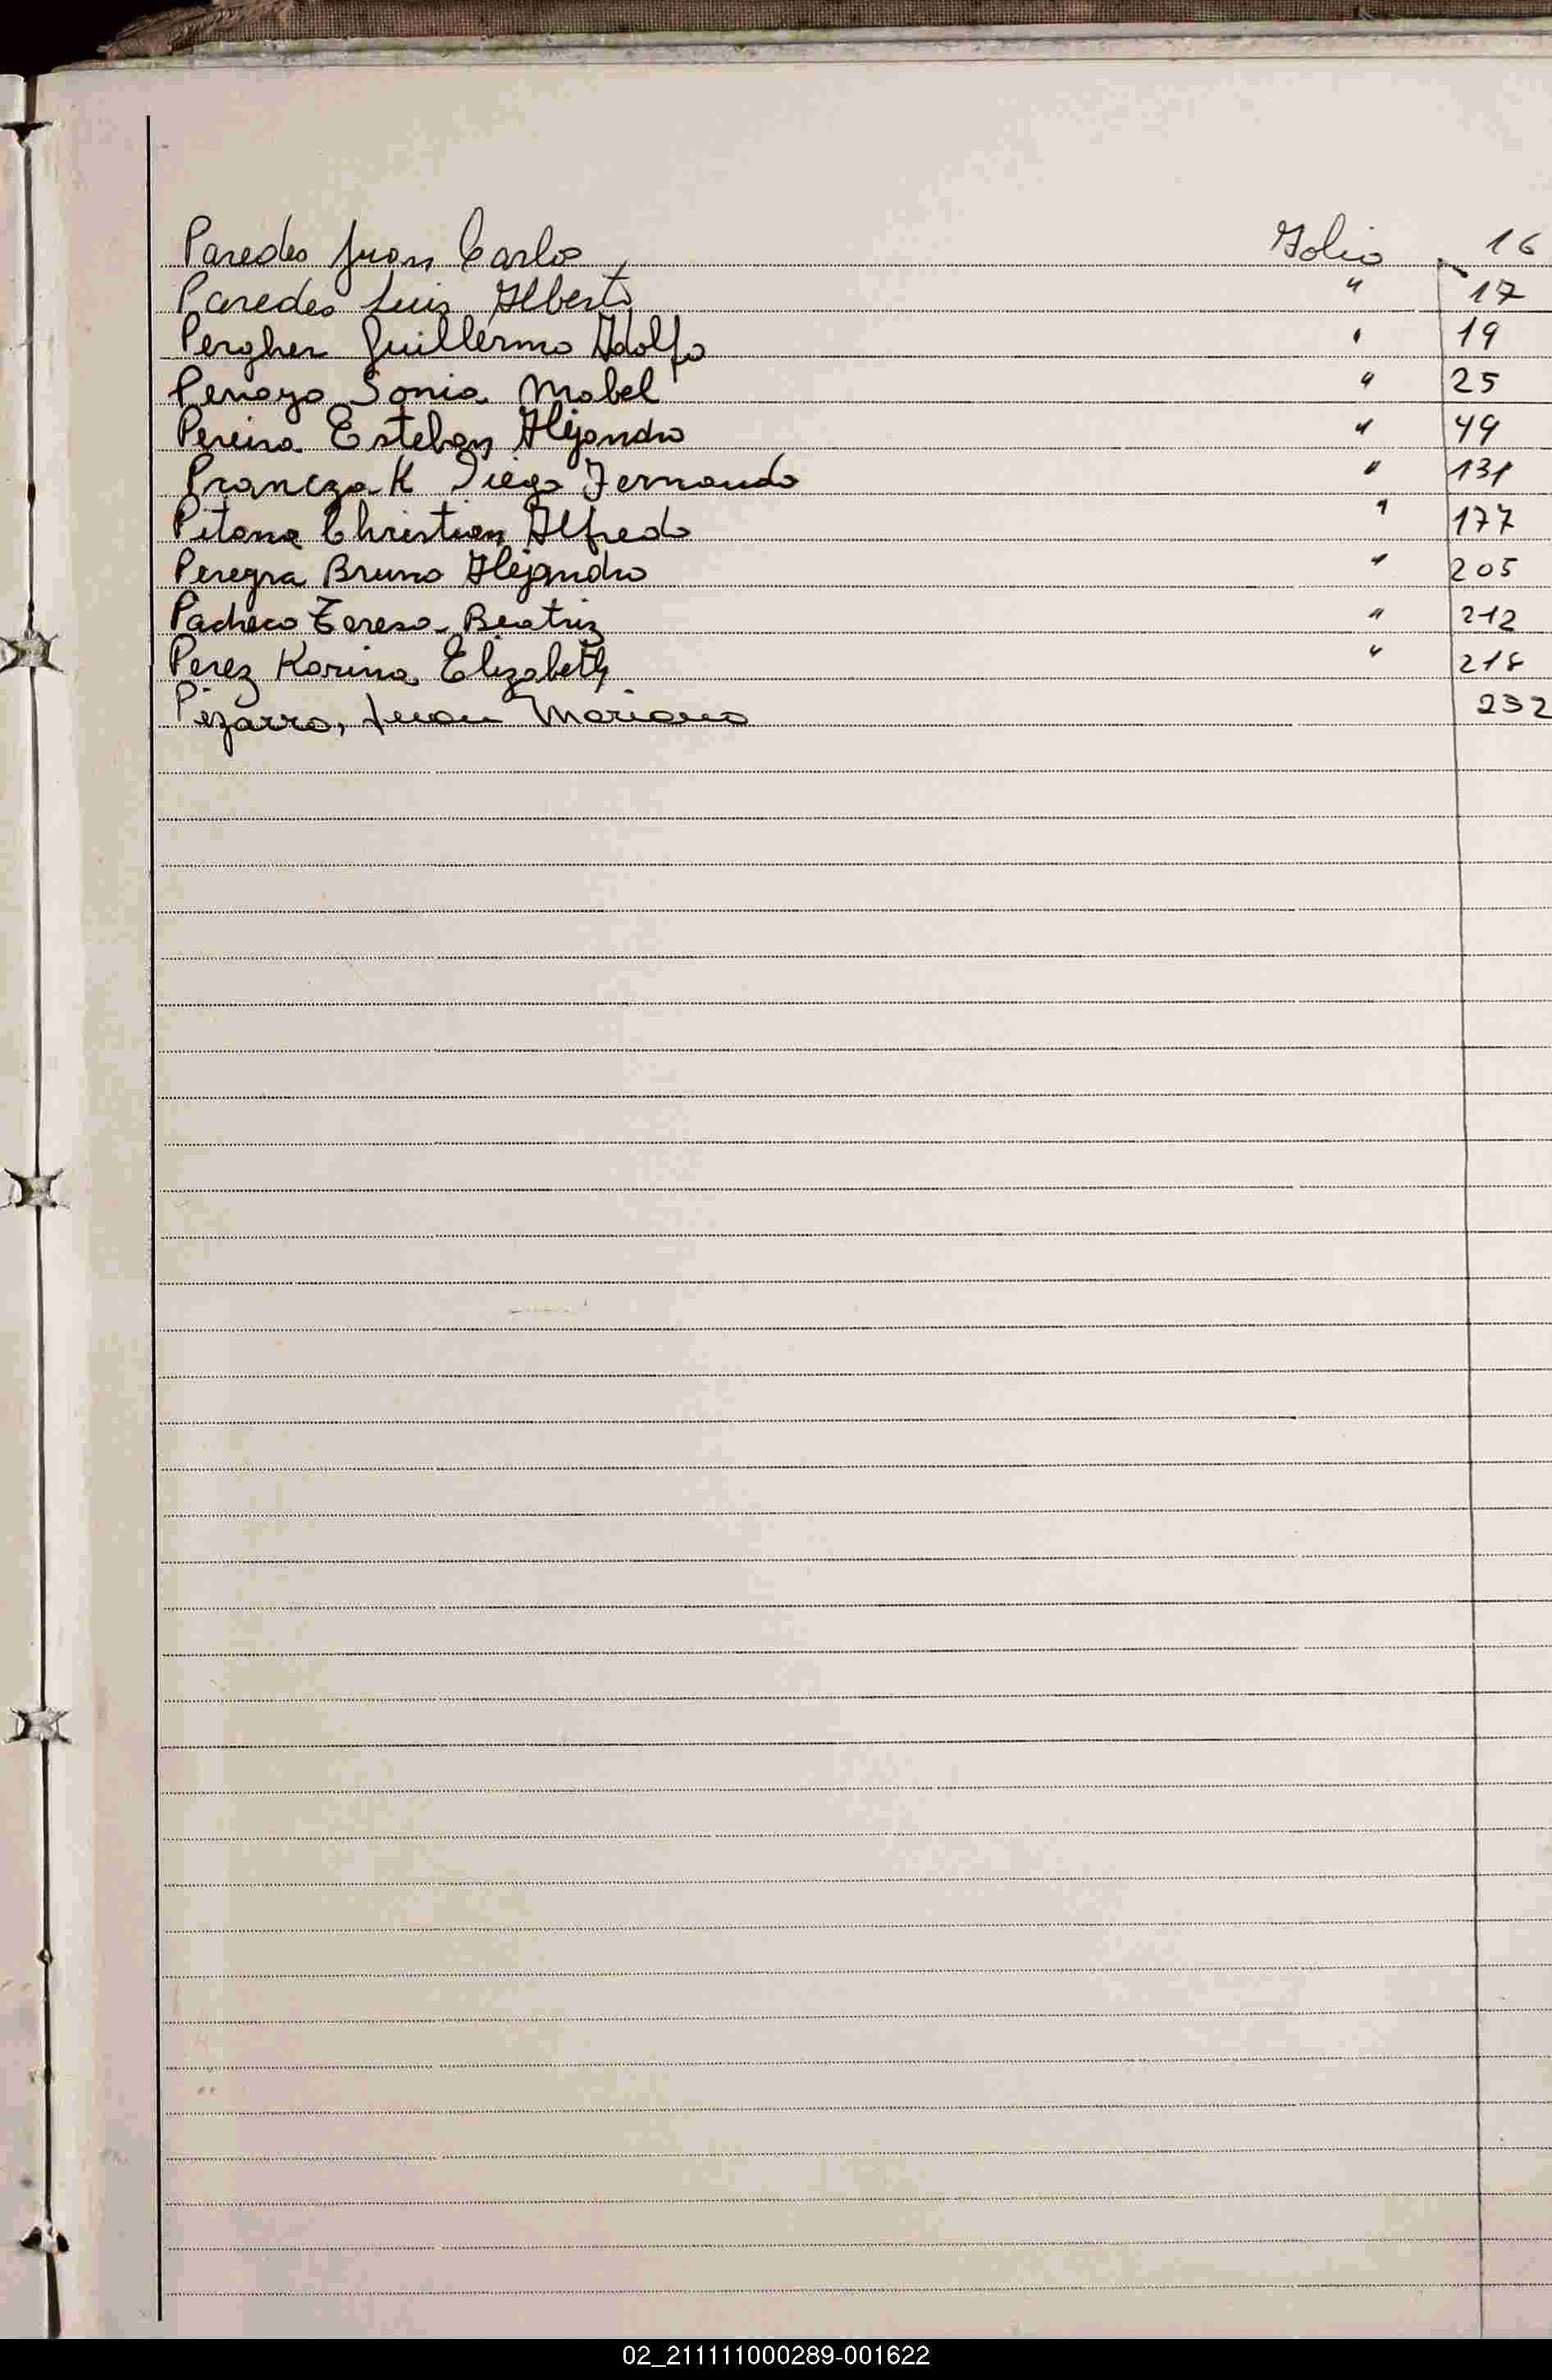 Paredes Juan Carlos Folio 16
Paredes Luis Alberto " 17
Pergher Guillermo Adolfo " 19
Penayo Sonia Mabel " 25
Pereira Esteban Alejandro " 49
Pranczak Diego Fernando " 131
Pitana Christian Alfredo " 177
Pereyra Bruno Alejandro " 205
Pacheco Teresa Beatriz " 212
Perez Karina Elizabeth " 218
Pizarro, Juan Mariano 232
02_211111000289-001622